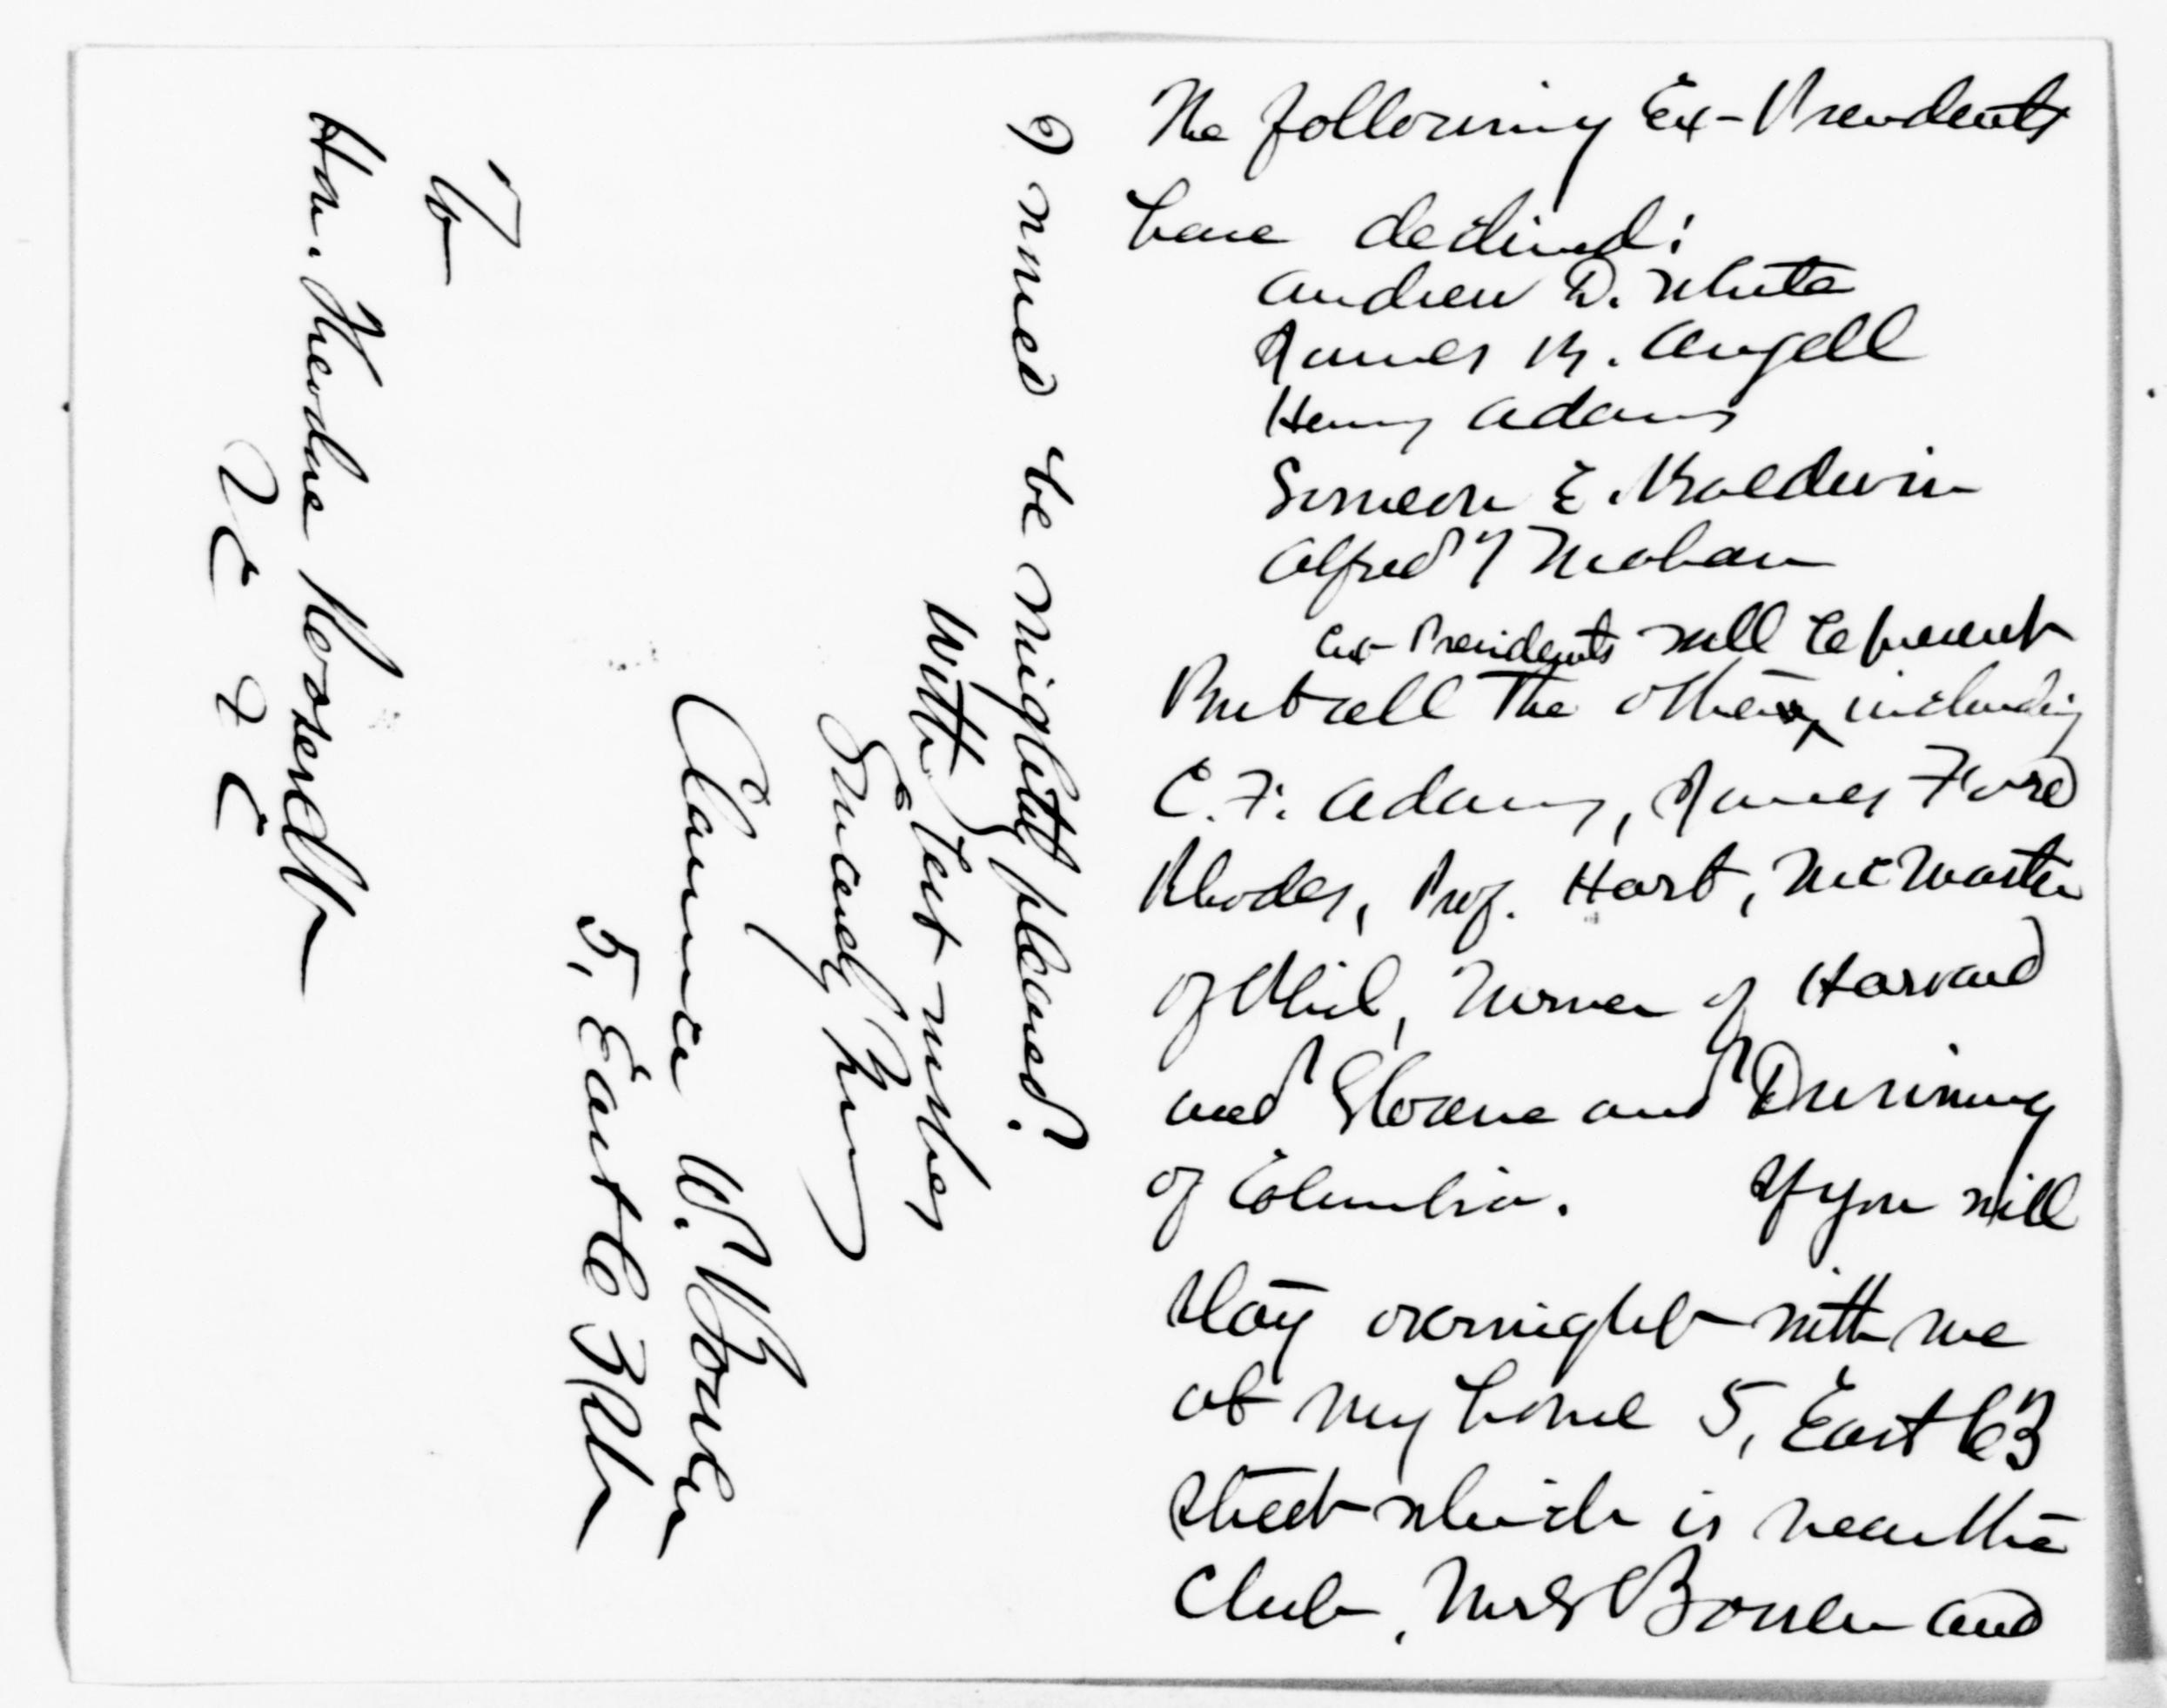 The following Ex-Presidents
have declined:
Andrew D. White
James B. Angell
Henry Adams
Simeon E. Baldwin
Alfred T Mahan
ex-Presidents will be present
But all the others, including
C. F. Adams, James Ford
Rhodes, Prof. Hart, McMaster
of Phil, Turner of Harvard
and Sloane and Dunning
of Columbia. If you will
stay overnight with me
at my home 5, East 63
Street which is near the
Club, Mrs Bowen and
I would be mightily pleased.
With best wishes
Sincerely
Clarence W. Bowen
5, East 63 St
To
Hon. Theodore Roosevelt